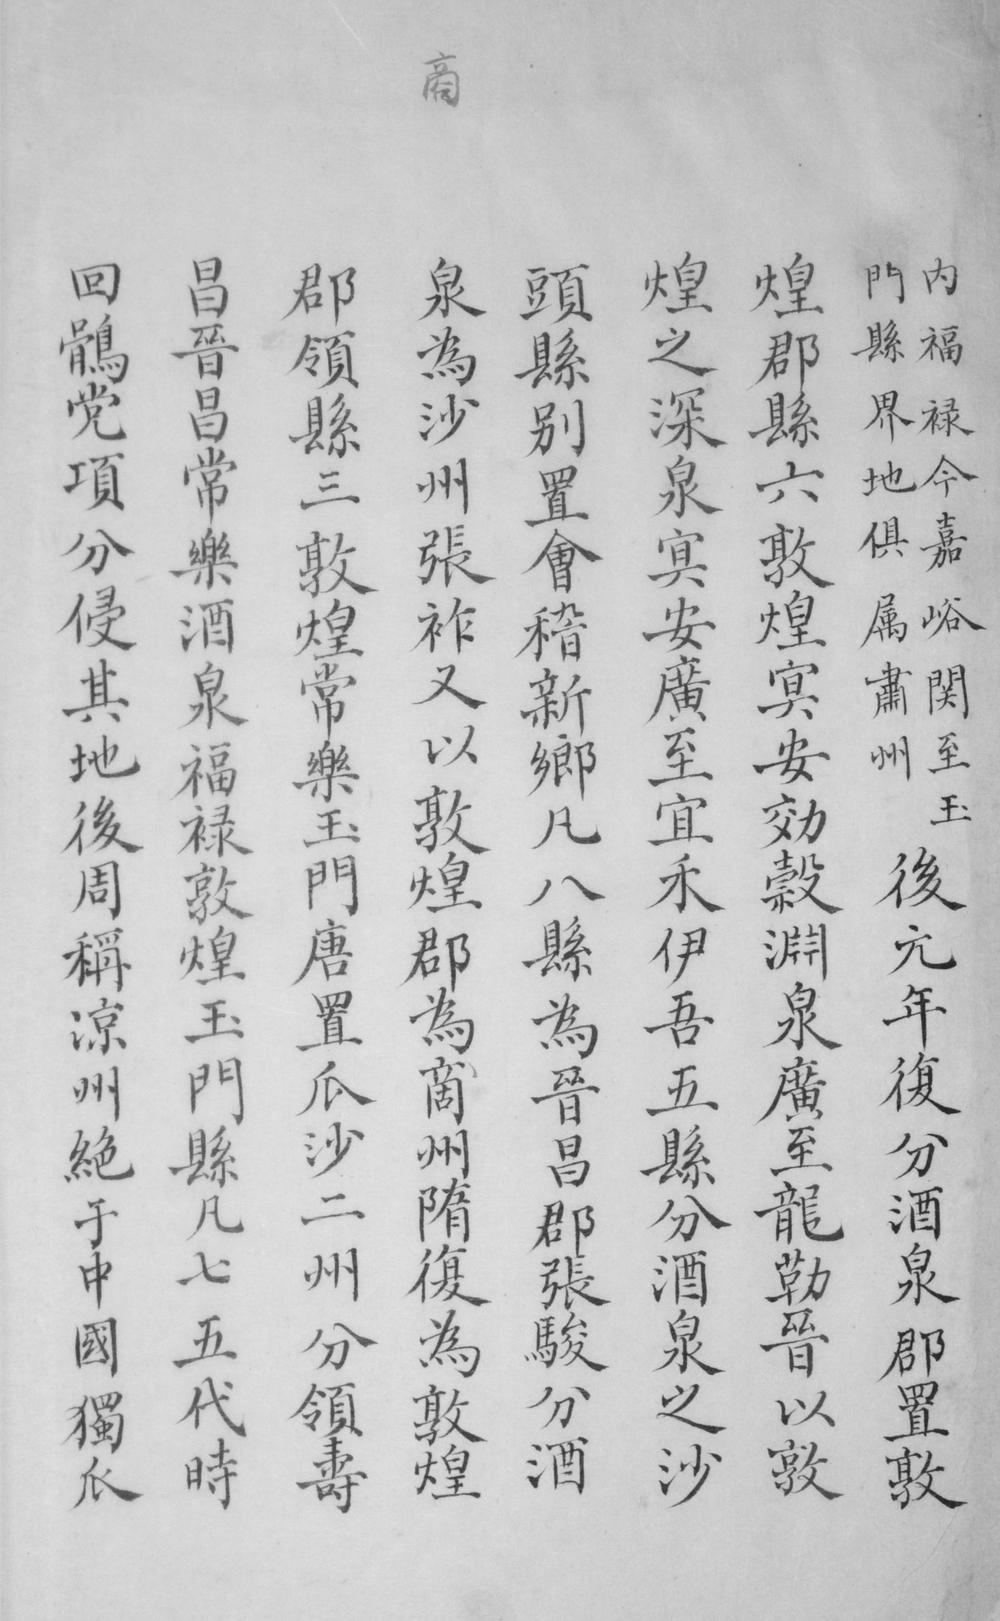 商
内福禄今嘉峪関至玉
門縣界地俱属肅州
後元年復分酒泉郡置敦
煌郡縣六敦煌冥安効穀淵泉廣至龍勒晉以敦
煌之深泉冥安廣至宜禾伊吾五縣分酒泉之沙
頭縣别置會稽新鄉凡八縣為晉昌郡張駿分酒
泉為沙州張祚又以敦煌郡為啇州隋復為敦煌
郡領縣三敦煌常樂玉門唐置瓜沙二州分領壽
昌晉昌常樂酒泉福禄敦煌玉門縣凡七五代時
回鶻党項分侵其地後周稱凉州絶于中國獨瓜